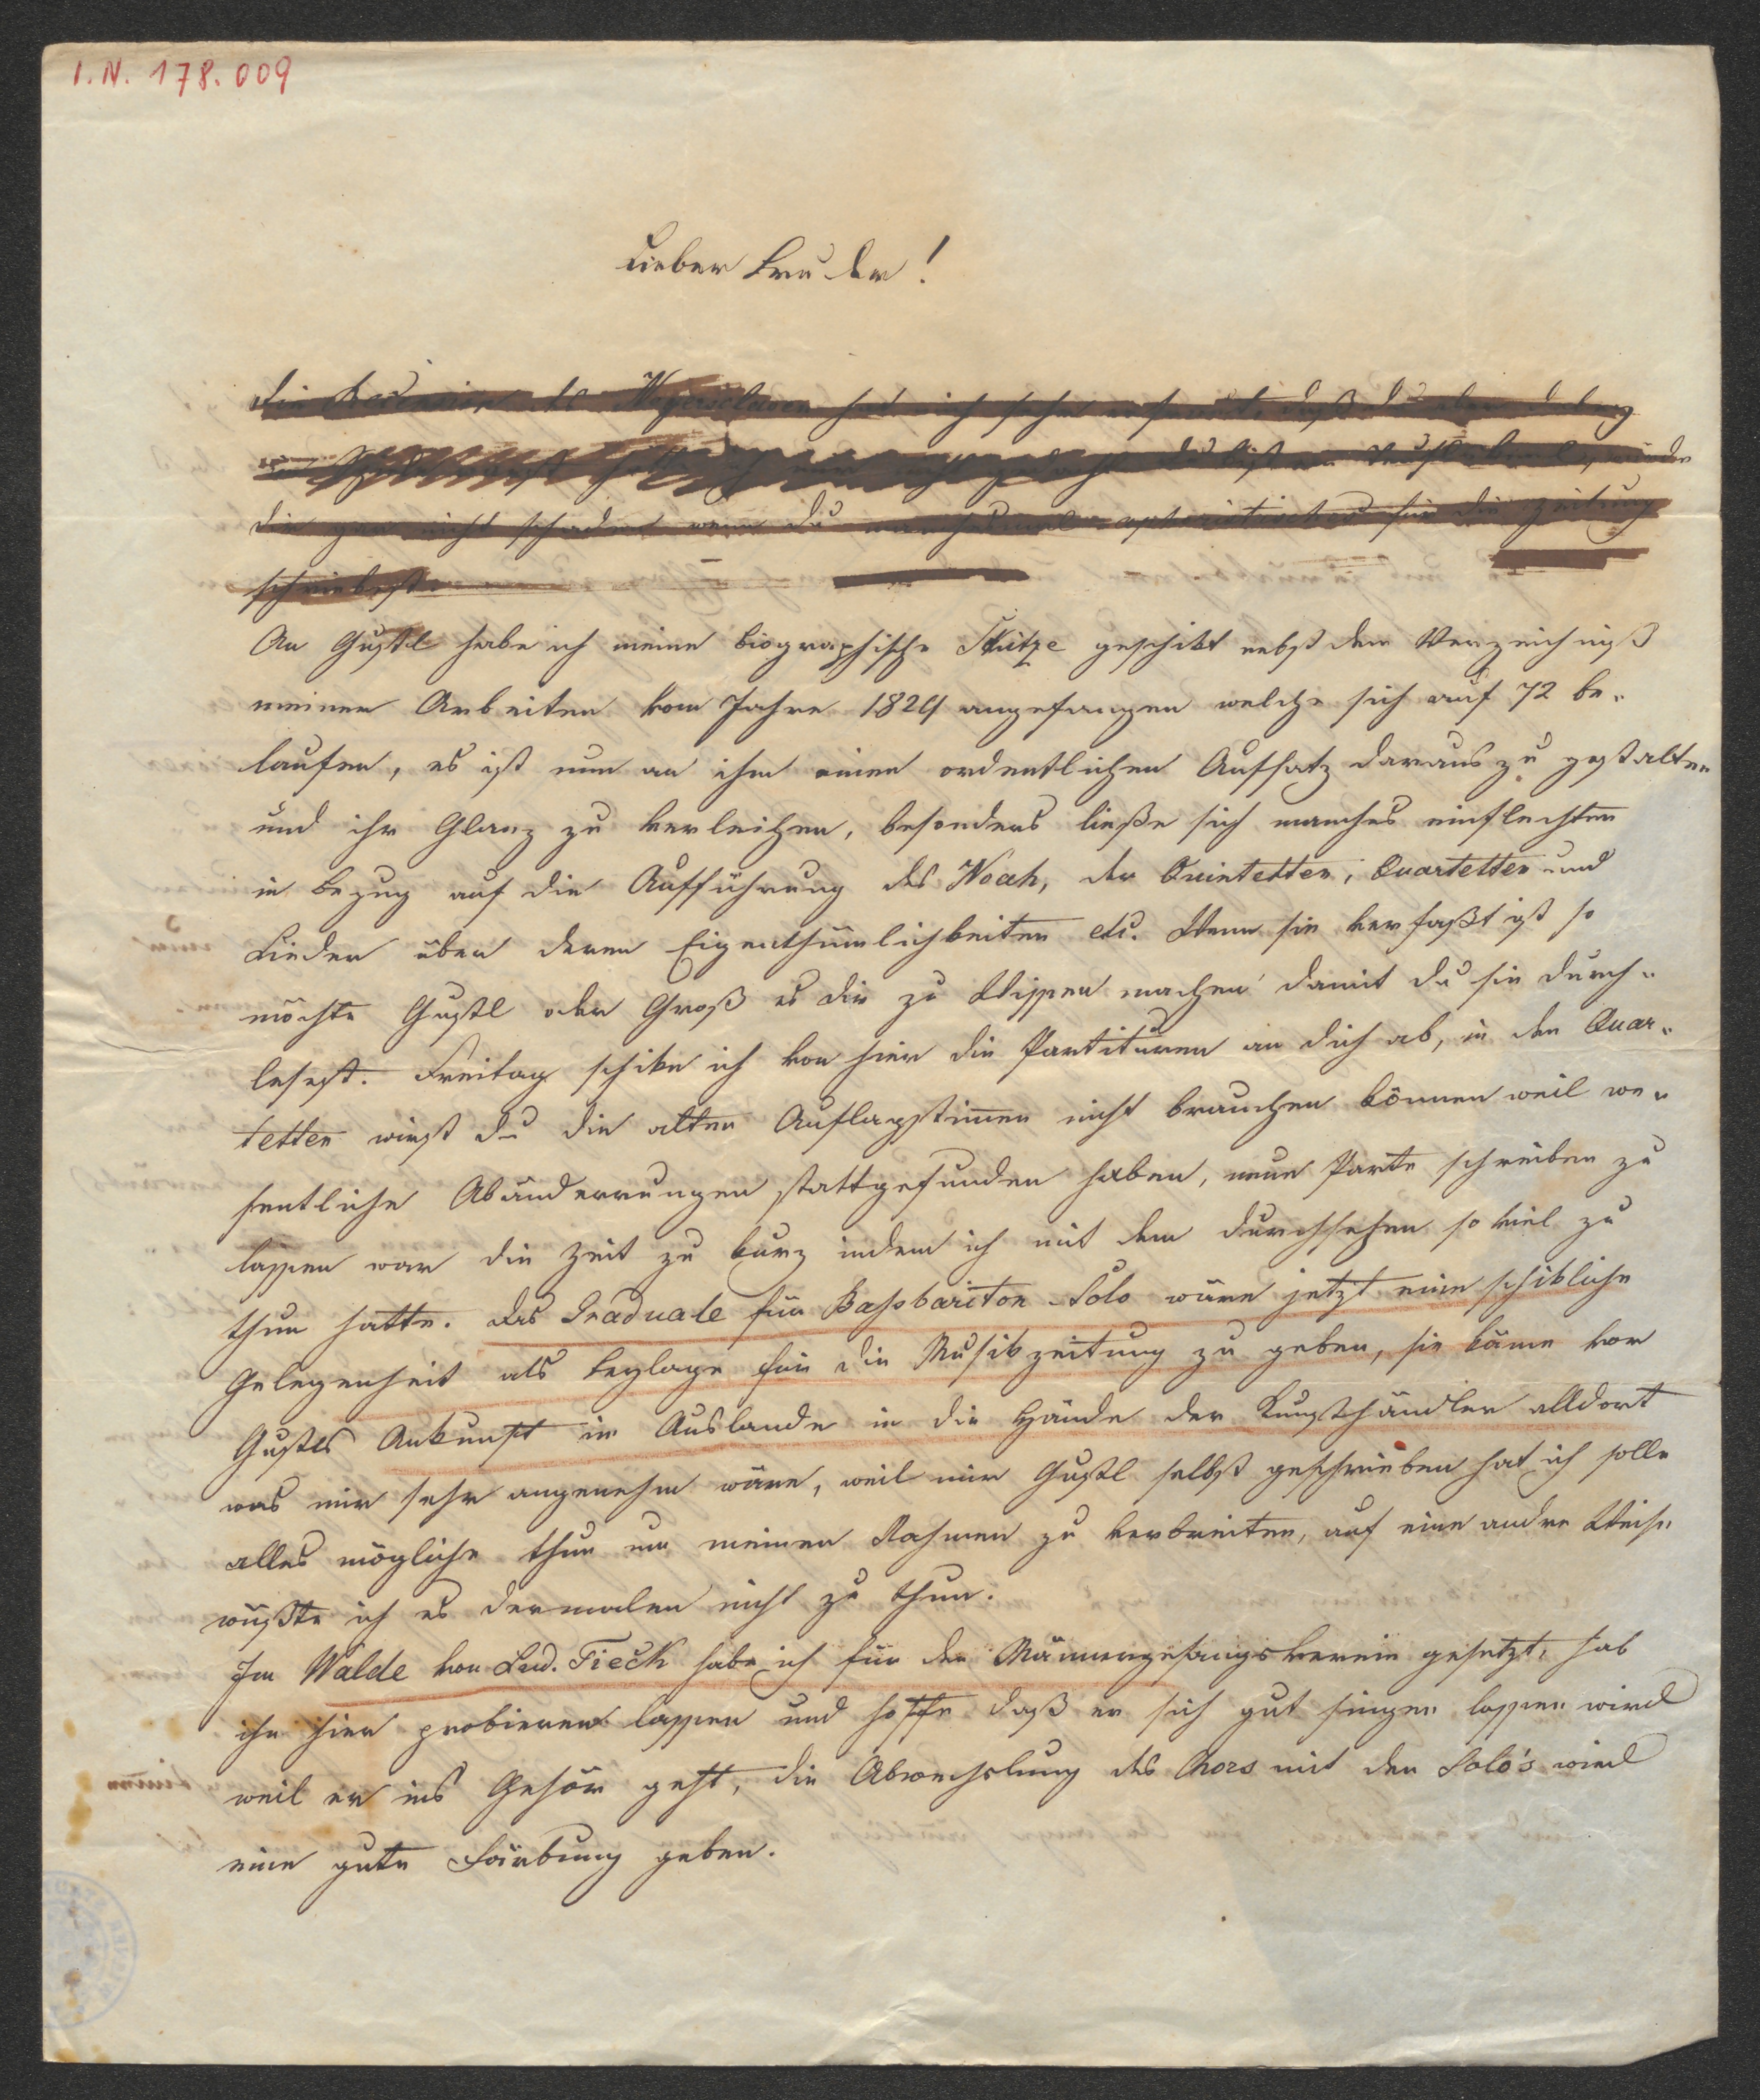 I.N. 178.009
Lieber Bruder!
die des Negersclaven hat mich sehr erfreut, daß du aber
ich mir nicht du bist ein würde
dir gar nicht schaden wenn du manchmal für die Zeitung
schriebest.
An Gustl habe ich meine biographische Skitze geschikt nebst dem Verzeichniß
meiner Arbeiten vom Jahre 1824 angefangen welche sich auf 72 be„
laufen, es ist nun an ihm einen ordentlichen Aufsatz daraus zu gestalten
und ihr Glanz zu verleihen, besonders ließe sich manches einflechten
in bezug auf die Aufführung des Noah, der Quintetten, Quartetten und
Lieder über deren Eigenthümlichkeiten etc. Wenn sie verfaßt ist so
möchte Gustl oder Groß es dir zu Wissen machen damit du sie durch„
lesest. Freitag schike ich von hier die Partituren an dich ab, in den Quar„
tetten wirst du die alten Auflagstimen nicht brauchen können weil we„
sentliche Abänderrungen stattgefunden haben, neue Parte schreiben zu
lassen war die Zeit zu kurz indem ich mit dem durchsehen so viel zu
thun hatte. das Graduale für Bassbariton-Solo wäre jetzt eine schikliche
Gelegenheit als beylage für die Musikzeitung zu geben, sie käme vor
Gustls Ankunft im Auslande in die Hände der Kunsthändler alldort
was mir sehr angenehm wäre, weil mir Gustl selbst geschrieben hat ich solle
alles mögliche thun um meinen Nahmen zu verbreiten, auf eine andre Weise
wüßte ich es dermalen nicht zu thun.
Im Walde von Lud. Tieck habe ich für den Männergesangsverein gesetzt, hab
ihn hier probieren lassen und hoffe daß er sich gut singen lassen wird
weil er ins Gehör geht, die Abwechslung des Chors mit den Solo's wird
eine gute Färbung geben.